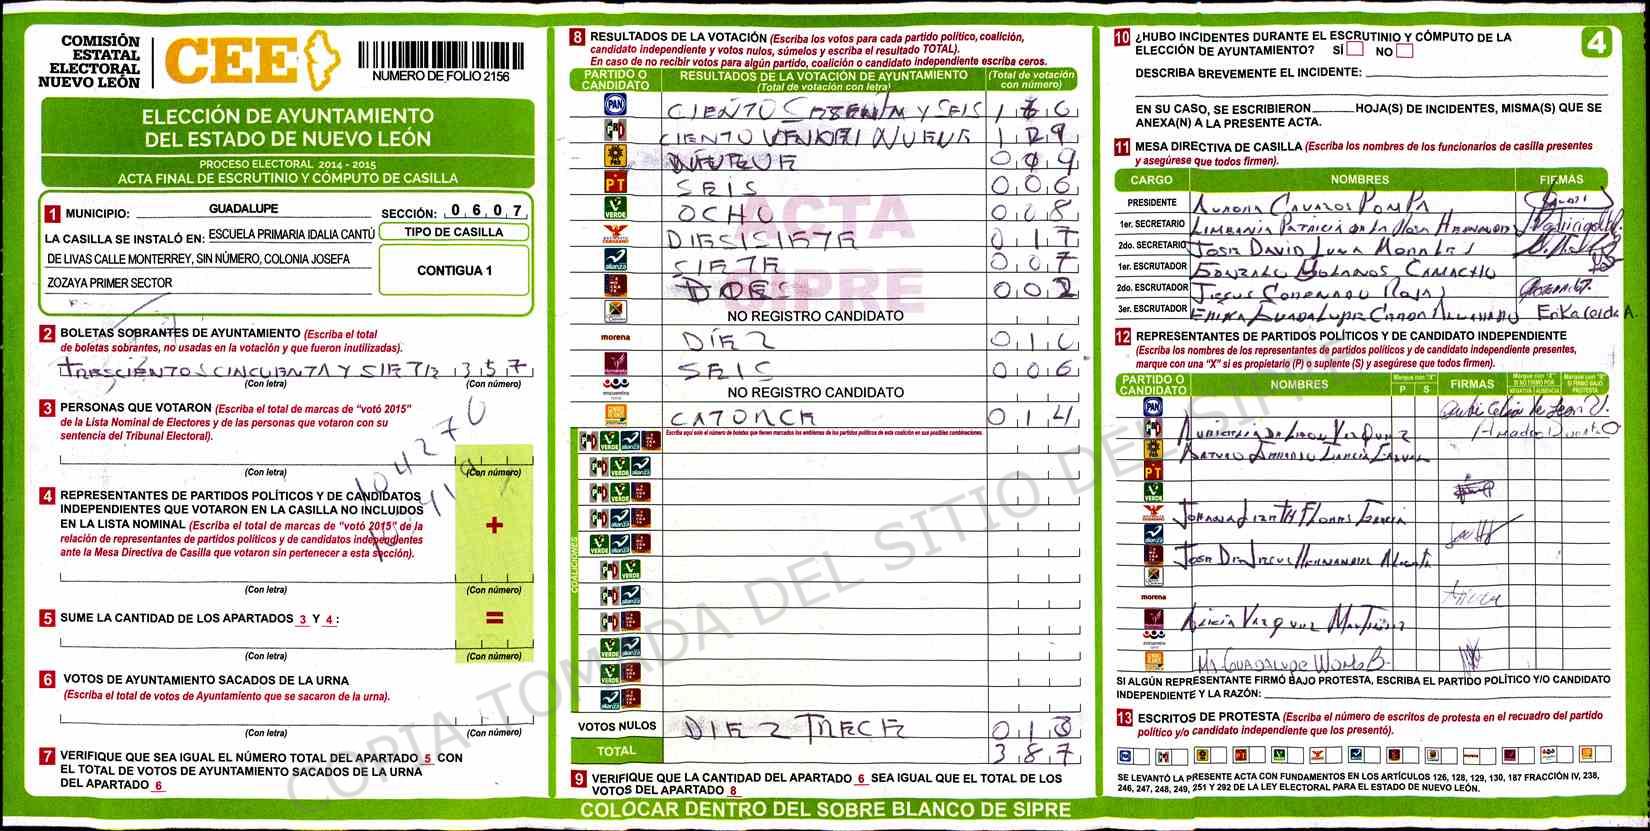 COMISIÓN
ESTATAL
ELECTORAL
NUEVO LEÓN
CEE
NUMERO DE FOLIO 2156
ELECCIÓN DE AYUNTAMIENTO
DEL ESTADO DE NUEVO LEÓN
PROCESO ELECTORAL 2014 - 2015
ACTA FINAL DE ESCRUTINIO Y CÓMPUTO DE CASILLA
1 MUNICIPIO: GUADALUPE SECCIÓN: 0 6 0 7
LA CASILLA SE INSTALÓ EN: ESCUELA PRIMARIA IDALIA CANTÚ
DE LIVAS CALLE MONTERREY, SIN NÚMERO, COLONIA JOSEFA
ZOZAYA PRIMER SECTOR
TIPO DE CASILLA
CONTIGUA 1
2 BOLETAS SOBRANTES DE AYUNTAMIENTO (Escriba el total
de boletas sobrantes, no usadas en la votación y que fueron inutilizadas).
TRESCIENTOS CINCUENTA Y SIETE 3 5 7
(Con letra) (Con número)
3 PERSONAS QUE VOTARON (Escriba el total de marcas de "votó 2015"
de la Lista Nominal de Electores y de las personas que votaron con su
sentencia del Tribunal Electoral).
(Con letra) (Con número)
4 REPRESENTANTES DE PARTIDOS POLÍTICOS Y DE CANDIDATOS
INDEPENDIENTES QUE VOTARON EN LA CASILLA NO INCLUIDOS
EN LA LISTA NOMINAL (Escriba el total de marcas de "votó 2015" de la
relación de representantes de partidos políticos y de candidatos independientes
ante la Mesa Directiva de Casilla que votaron sin pertenecer a esta sección).
+
(Con letra) (Con número)
5 SUME LA CANTIDAD DE LOS APARTADOS 3 Y 4:
=
(Con letra) (Con número)
6 VOTOS DE AYUNTAMIENTO SACADOS DE LA URNA
(Escriba el total de votos de Ayuntamiento que se sacaron de la urna).
(Con letra) (Con número)
7 VERIFIQUE QUE SEA IGUAL EL NÚMERO TOTAL DEL APARTADO 5 CON
EL TOTAL DE VOTOS DE AYUNTAMIENTO SACADOS DE LA URNA
DEL APARTADO 6
8 RESULTADOS DE LA VOTACIÓN (Escriba los votos para cada partido político, coalición,
candidato independiente y votos nulos, súmelos y escriba el resultado TOTAL).
En caso de no recibir votos para algún partido, coalición o candidato independiente escriba ceros.
PARTIDO O CANDIDATO
RESULTADOS DE LA VOTACIÓN DE AYUNTAMIENTO
(Total de votación con letra)
(Total de votación con número)
PAN CIENTO SESENTA Y SEIS 1 6 6
PRI CIENTO VEINTINUEVE 1 2 9
PRD NUEVE 0 0 9
PT SEIS 0 0 6
VERDE OCHO 0 0 8
DIESISIETE 0 1 7
alianza SIETE 0 0 7
DOS 0 0 2
NO REGISTRO CANDIDATO
morena DIEZ 0 1 0
SEIS 0 0 6
encuentro NO REGISTRO CANDIDATO
CATORCE 0 1 4
Escriba aquí solo el número de boletas que tienen marcados los emblemas de los partidos políticos de esta coalición en sus posibles combinaciones.
COALICIONES
VOTOS NULOS DIEZ TRECE 0 1 3
TOTAL 3 8 7
ACTA
SIPRE
9 VERIFIQUE QUE LA CANTIDAD DEL APARTADO 6 SEA IGUAL QUE EL TOTAL DE LOS
VOTOS DEL APARTADO 8
COLOCAR DENTRO DEL SOBRE BLANCO DE SIPRE
10 ¿HUBO INCIDENTES DURANTE EL ESCRUTINIO Y CÓMPUTO DE LA
ELECCIÓN DE AYUNTAMIENTO? SÍ NO
4
DESCRIBA BREVEMENTE EL INCIDENTE:
EN SU CASO, SE ESCRIBIERON HOJA(S) DE INCIDENTES, MISMA(S) QUE SE
ANEXA(N) A LA PRESENTE ACTA.
11 MESA DIRECTIVA DE CASILLA (Escriba los nombres de los funcionarios de casilla presentes
y asegúrese que todos firmen).
CARGO NOMBRES FIRMAS
PRESIDENTE AURORA CAVAZOS POMPA
1er. SECRETARIO LIMBANIA PATRICIA DE LA ROSA
2do. SECRETARIO JOSE DAVID LUNA MORALES
1er. ESCRUTADOR GONZALO BOLAÑOS CAMACHO
2do. ESCRUTADOR JESUS CORONADO ROJAS
3er. ESCRUTADOR ERIKA GUADALUPE Erika
12 REPRESENTANTES DE PARTIDOS POLÍTICOS Y DE CANDIDATO INDEPENDIENTE
(Escriba los nombres de los representantes de partidos políticos y de candidato independiente presentes,
marque con una "X" si es propietario (P) o suplente (S) y asegúrese que todos firmen).
PARTIDO O CANDIDATO NOMBRES P S FIRMAS
DE LEON VAZQUEZ
ARTURO AMADOR GARCIA
JOHANA LIZETH FLORES GARCIA
JOSE DE JESUS HERNANDEZ
morena
ALICIA VAZQUEZ MARTINEZ
MA GUADALUPE
SI ALGÚN REPRESENTANTE FIRMÓ BAJO PROTESTA, ESCRIBA EL PARTIDO POLÍTICO Y/O CANDIDATO
INDEPENDIENTE Y LA RAZÓN:
13 ESCRITOS DE PROTESTA (Escriba el número de escritos de protesta en el recuadro del partido
político y/o candidato independiente que los presentó).
SE LEVANTÓ LA PRESENTE ACTA CON FUNDAMENTOS EN LOS ARTÍCULOS 126, 128, 129, 130, 187 FRACCIÓN IV, 238,
246, 247, 248, 249, 251 Y 292 DE LA LEY ELECTORAL PARA EL ESTADO DE NUEVO LEÓN.
COPIA TOMADA DEL SITIO DEL SIPRE